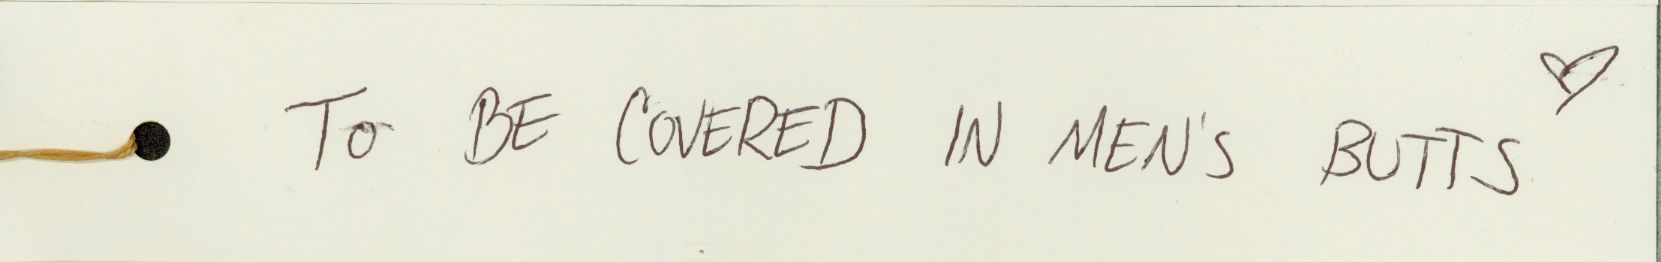 To BE COVERED IN MEN'S BUTTS